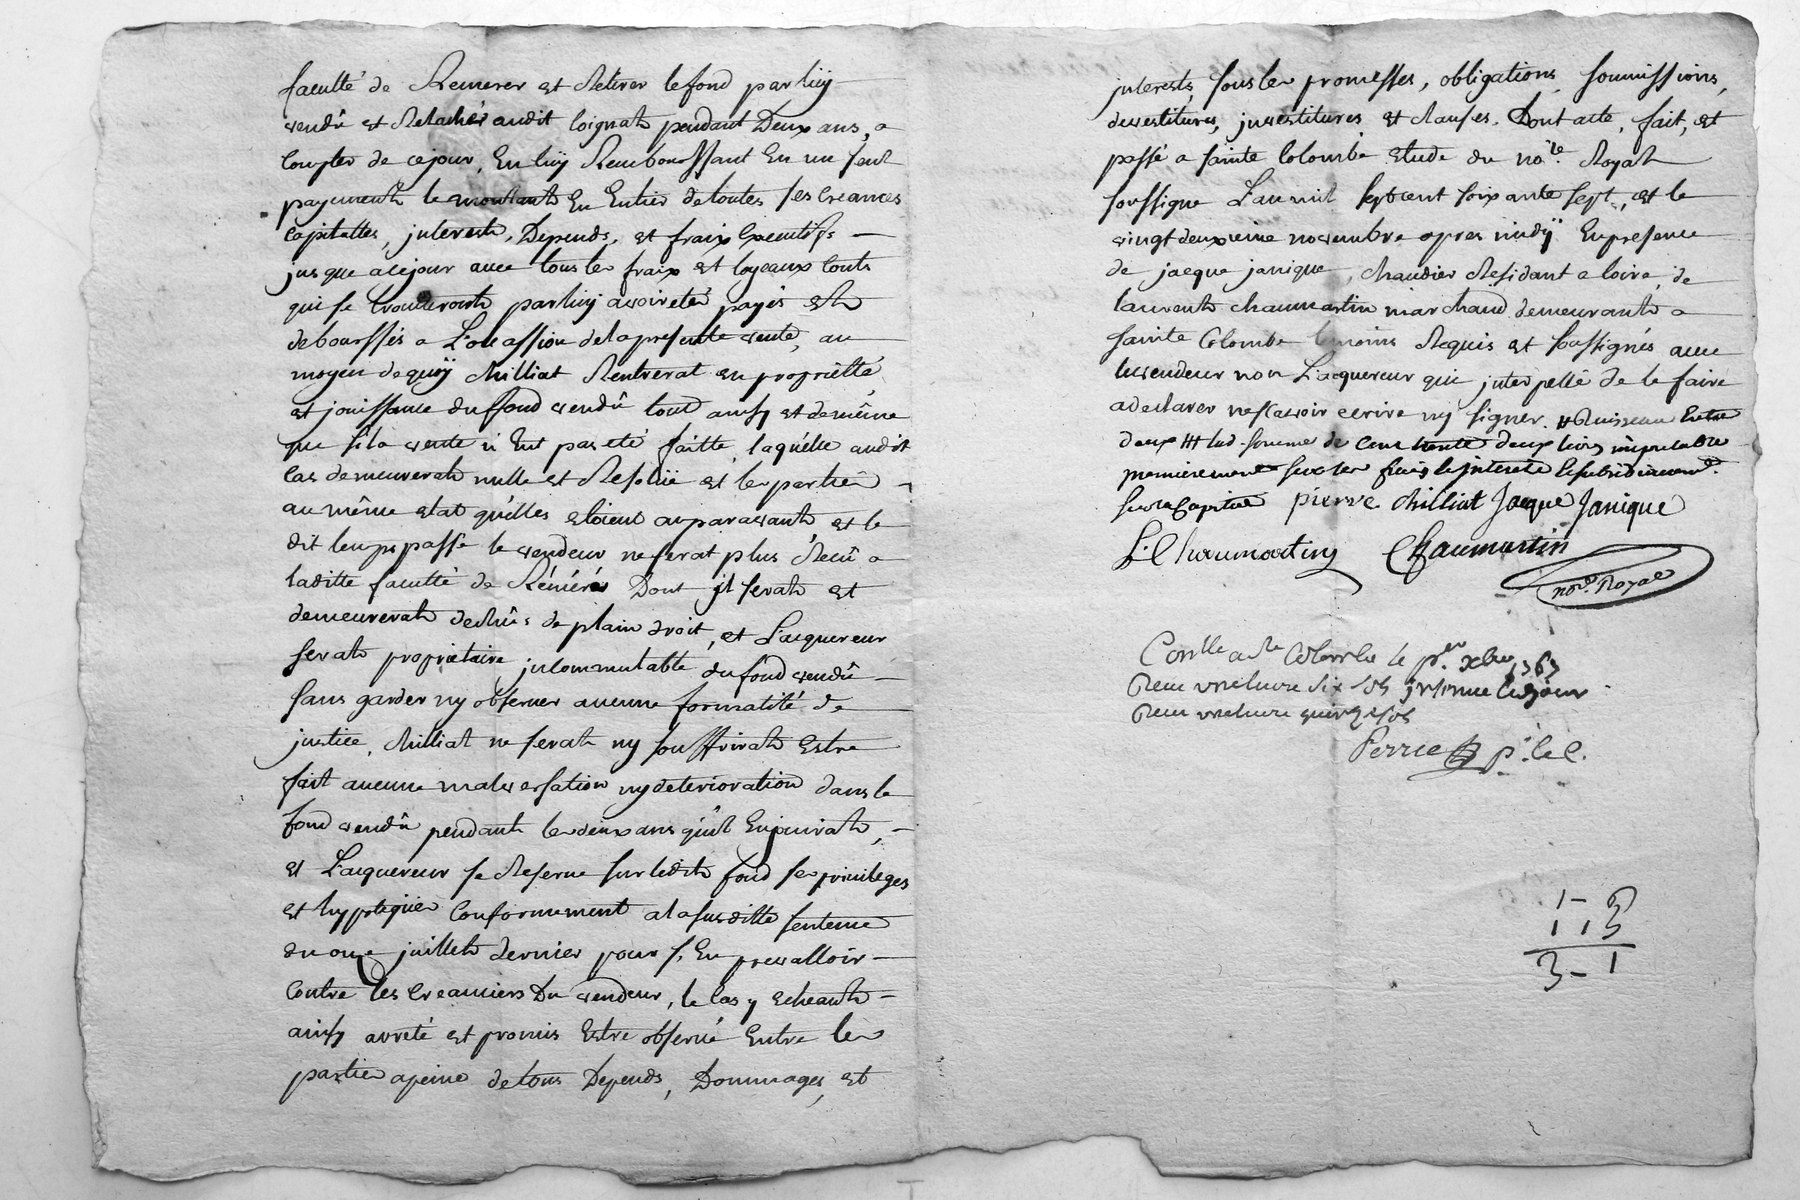 faculté de Remerer et Retirer lefond par luy
vendû et Relaché audit Coignat pendant Deux ans, a
Compter de cejour, En luy Rembourssant En un seul
payement le montant En Entier detoutes ses creances
Capitalles, jnterests, Depends, et fraix Executifs
jusque acejour avec tous les fraix et loyeaux Couts
qui se trouveront par luy avoir eté payés et
debourssés a L'occassion delapresente vente, au
moyen dequoy Milliat Rentrerat en proprieté
et jouissance duffond vendû tout ainsy et demême
que sila vente n'Eut pas eté faitte, laquelle audit
Cas demeurerat nulle et Resolüe et les parties
au même etat qu'elles etoient auparavant et le
dit temps passe le vendeur ne serat plus Recû a
laditte faculté de Réméré Dont jl serat et
demeurerat dechûs de plain droit, et L'acquereur
serat proprietaire jncommutable du fond vendû
sans garder ny observer aucune formalité de
justice, Milliat ne ferat ny souffrirat Estre
fait aucune malversation ny deterioration dans le
fond vendû pendant les deux ans qu'il Enjouirat,
et L'acquereur se Reserve sur ledit fond ses privileges
et hypoteques Conformement alasusditte sentence
du onze juillet dernier pour s'En prevalloir
Contre les Creanciers Du vendeur, le Cas y echeant
ainsy arreté et promis Estre observé Entre les
parties apeine detous Depends, Dommages, et
jnterests, sous les promesses, obligations, soumissions,
devestitures, jnvestitures et clauses. Dont acte, fait, et
passé a sainte Colombe etude du no.re Royal
soussigne L'an mil sept cent soixante sept, et le
vingt deuxieme novembre apres midÿ Enpresence
de jacque janique, Residant a loire, de
laurent chaumartin marchand demeurant a
sainte Colombe temoins Requis et soussignés avec
levendeur non L'acquereur qui jnterpellé de le faire
adeclarer nesçavoir ecrire ny signer. # Ruisseau Entre
deux ## lad. somme de Cent trente deux livres imputable
premierement sur les fraix les jnterets et subsidiairement
sur le Capital pierre Milliat Jacque Janique
L. Chaumartin Chaumartin
no.re Royal
Con.lle a s.te Colombe le p.er xbre 1767
Reçu une livre six sols
Reçu une livre quinze sols
Perrie p.r le C.
1 - 3
1 , , 3
3 - 1